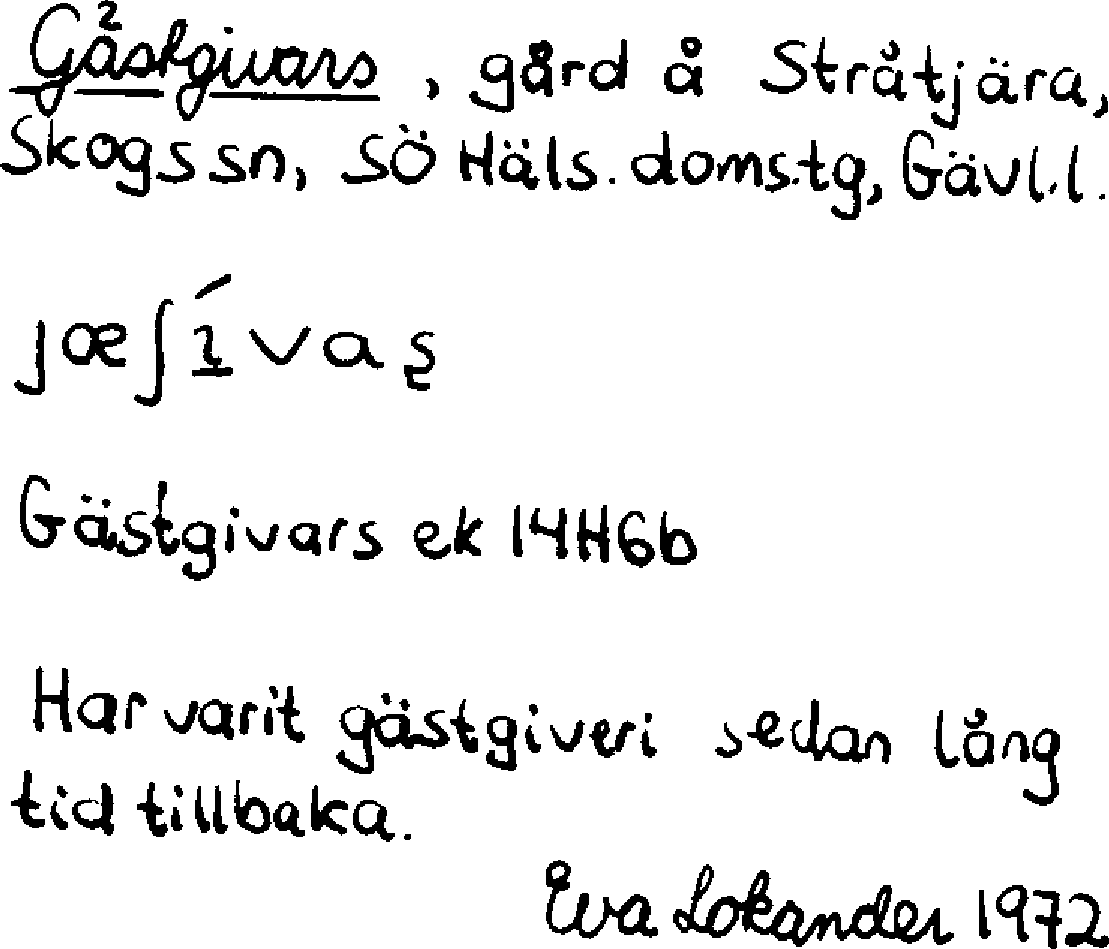 Gästgivars, gård å Stråtjära,
Skogs sn, SÖ Häls. domstg, Gävl.l.
Gästgivars ek 14H6b
Har varit gästgiveri sedan lång
tid tillbaka.
Eva Lokander 1972